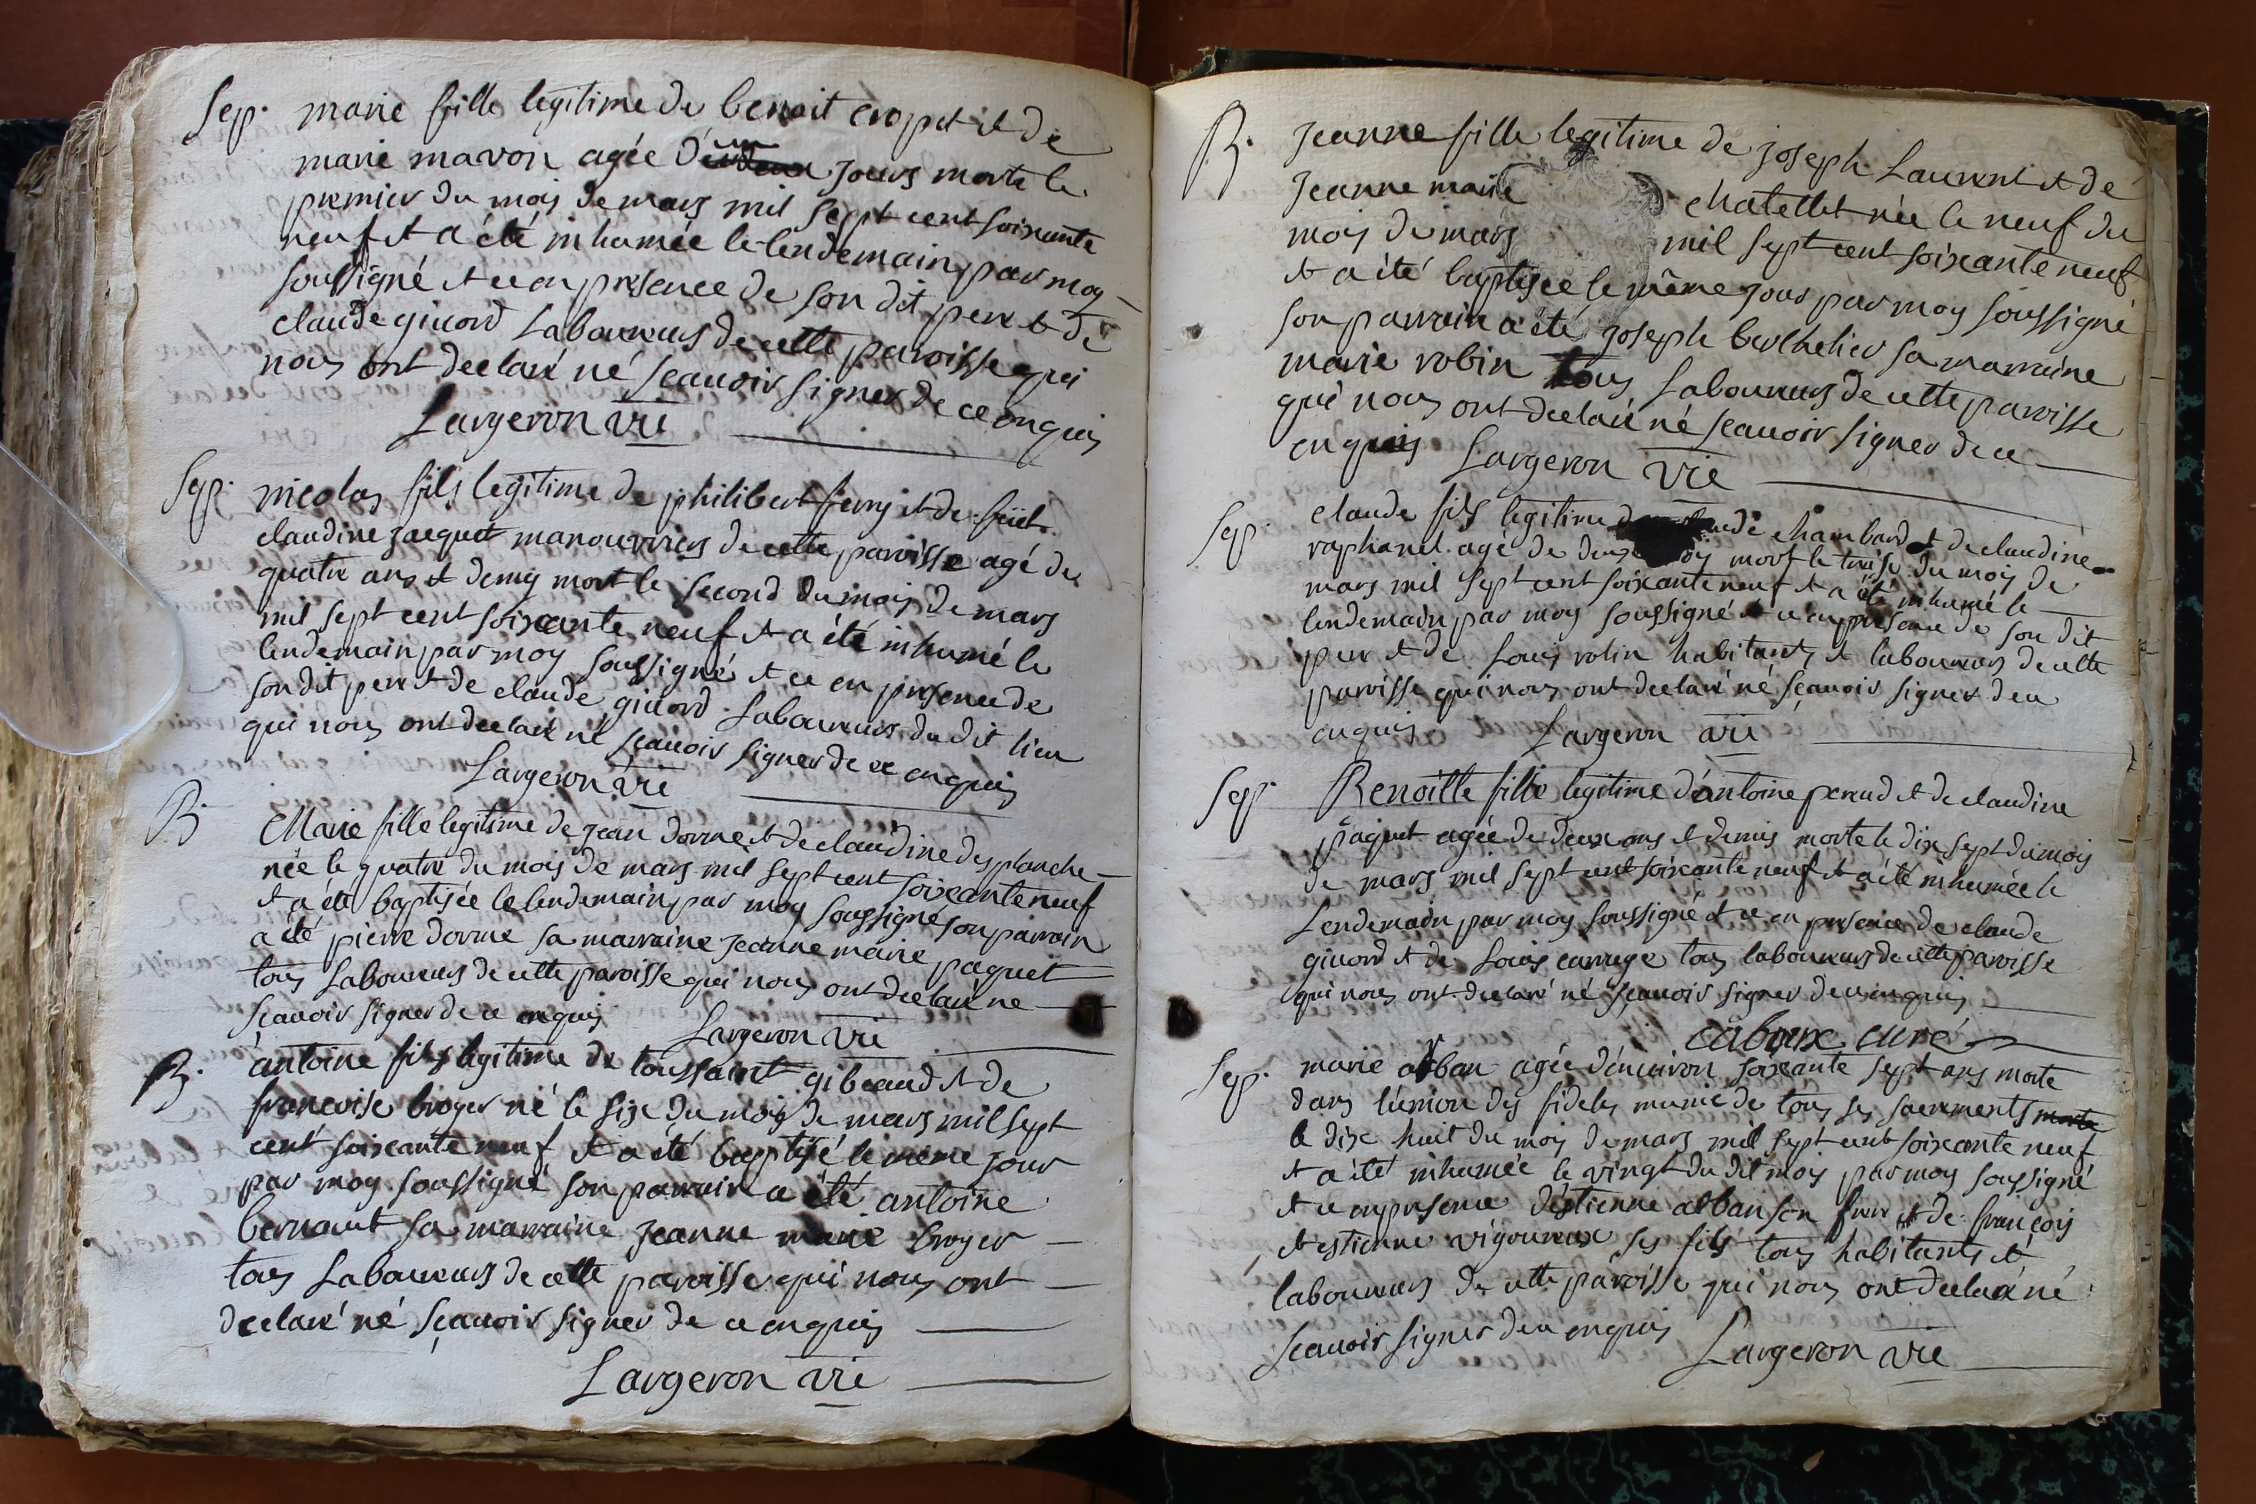 Sep. marie fille legitime de benoit cropet et de
marie mavon agée d'un jours morte le
premier du mois de mars mil sept cent soixante
neuf et a été inhumée le lendemain par moy
soussigné et ce en presence de son dit pere et de
claude givord Laboureurs de cette paroisse qui
nous ont declaré né scavoir signer de ce enquis
Largeron vic
Sep. nicolas fils legitime de philibert ferry et de
claudine jacquet manouvriers de cette paroisse agé de
quatre ans et demy mort le second du mois de mars
mil sept cent soixante neuf et a été inhumé le
lendemain par moy soussigné et ce en presence de
son dit pere et de claude givord Laboureurs du dit lieu
qui nous ont declaré né scavoir signer de ce enquis
Largeron vic
B. Marie fille legitime de jean dorme et de claudine desplanche
née le quatre du mois de mars mil sept cent soixante neuf
et a été baptisée le lendemain par moy soussigné son parrain
a été pierre dorme sa marraine jeanne marie paquet
tous Laboureurs de cette paroisse qui nous ont declaré ne
scavoir signer de ce enquis Largeron vic
B. antoine fils legitime de toussaint gibeaud et de
francoise broyer né le six du mois de mars mil sept
cent soixante neuf et a été baptisé le même jour
par moy soussigné son parrain a été antoine
bernaut sa marraine jeanne marie broyer
tous Laboureurs de cette paroisse qui nous ont
declaré né scavoir signer de ce enquis
Largeron vic
B. Jeanne fille legitime de joseph Laurent et de
Jeanne marie chatellet née le neuf du
mois de mars mil sept cent soixante neuf
et a été baptisée le même jour par moy soussigné
son parrain a été joseph berthelier sa marraine
marie robin tous Laboureurs de cette paroisse
qui nous ont declaré né scavoir signer de ce
enquis Largeron vic
Sep. claude fils legitime de claude chambard et de claudine
raphanel agé de deux moy mort le treise du mois de
mars mil sept cent soixante neuf et a été inhumé le
lendemain par moy soussigné et ce en presence de son dit
pere et de Louis robin habitants et laboureurs de cette
paroisse qui nous ont declaré né scavoir signer de ce
enquis Largeron vic
Sep. Benoitte fille legitime d'antoine perud et de claudine
paquet agée de deux ans et demis morte le dix sept du mois
de mars mil sept cent soixante neuf et a été inhumée le
Lendemain par moy soussigné et ce en presence de claude
givord et de Louis carruge tous laboureurs de cette paroisse
qui nous ont declaré né scavoir signer de ce enquis
caboux curé
Sep. marie alban agée d'environ soixante sept ans morte
dans l'union des fideles munie de tous ses sacrements morte
le dix huit du mois de mars mil sept cent soixante neuf
et a été inhumée le vingt du dit mois par moy soussigné
et ce en presence d'estienne alban son frere et de françois
et estienne vigoureux ses fils tous habitants et
laboureurs de cette paroisse qui nous ont declaré né
scavoir signer de ce enquis Largeron vic